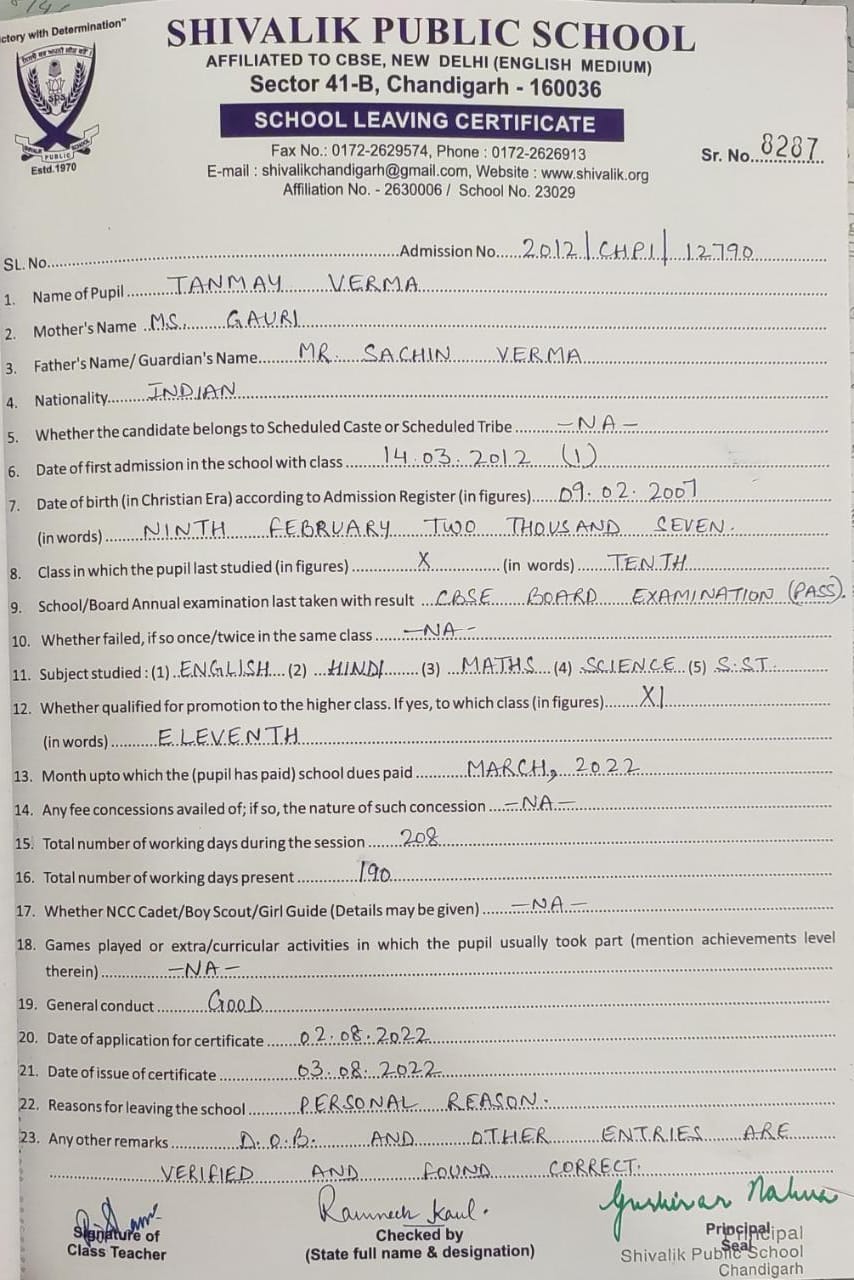 ctory with Determination"
SHIVALIK PUBLIC SCHOOL
AFFILIATED TO CBSE, NEW DELHI (ENGLISH MEDIUM)
Sector 41-B, Chandigarh - 160036
SCHOOL LEAVING CERTIFICATE
SPS
PUBLIC
Estd.1970
Fax No.: 0172-2629574, Phone : 0172-2626913
E-mail : shivalikchandigarh@gmail.com, Website : www.shivalik.org
Affiliation No. - 2630006 / School No. 23029
Sr. No. 8287
SL. No. Admission No. 2012/CHPI/12790
1. Name of Pupil TANMAY VERMA
2. Mother's Name MS. GAURI
3. Father's Name/ Guardian's Name MR. SACHIN VERMA
4. Nationality INDIAN
5. Whether the candidate belongs to Scheduled Caste or Scheduled Tribe -NA-
6. Date of first admission in the school with class 14.03.2012 (I)
7. Date of birth (in Christian Era) according to Admission Register (in figures) 09.02.2007
(in words) NINTH FEBRUARY TWO THOUSAND SEVEN.
8. Class in which the pupil last studied (in figures) X (in words) TENTH
9. School/Board Annual examination last taken with result CBSE BOARD EXAMINATION (PASS).
10. Whether failed, if so once/twice in the same class -NA-
11. Subject studied : (1) ENGLISH (2) HINDI (3) MATHS (4) SCIENCE (5) S.ST.
12. Whether qualified for promotion to the higher class. If yes, to which class (in figures) XI
(in words) ELEVENTH
13. Month upto which the (pupil has paid) school dues paid MARCH, 2022
14. Any fee concessions availed of; if so, the nature of such concession -NA-
15. Total number of working days during the session 208
16. Total number of working days present 190
17. Whether NCC Cadet/Boy Scout/Girl Guide (Details may be given) -NA-
18. Games played or extra/curricular activities in which the pupil usually took part (mention achievements level
therein) -NA-
19. General conduct GOOD
20. Date of application for certificate 02.08.2022
21. Date of issue of certificate 03.08.2022
22. Reasons for leaving the school PERSONAL REASON.
23. Any other remarks D.O.B. AND OTHER ENTRIES ARE
VERIFIED AND FOUND CORRECT.
Ramneek Kaul.
Signature of
Class Teacher
Checked by
(State full name & designation)
Principal
Seal
Principal
Shivalik Public School
Chandigarh